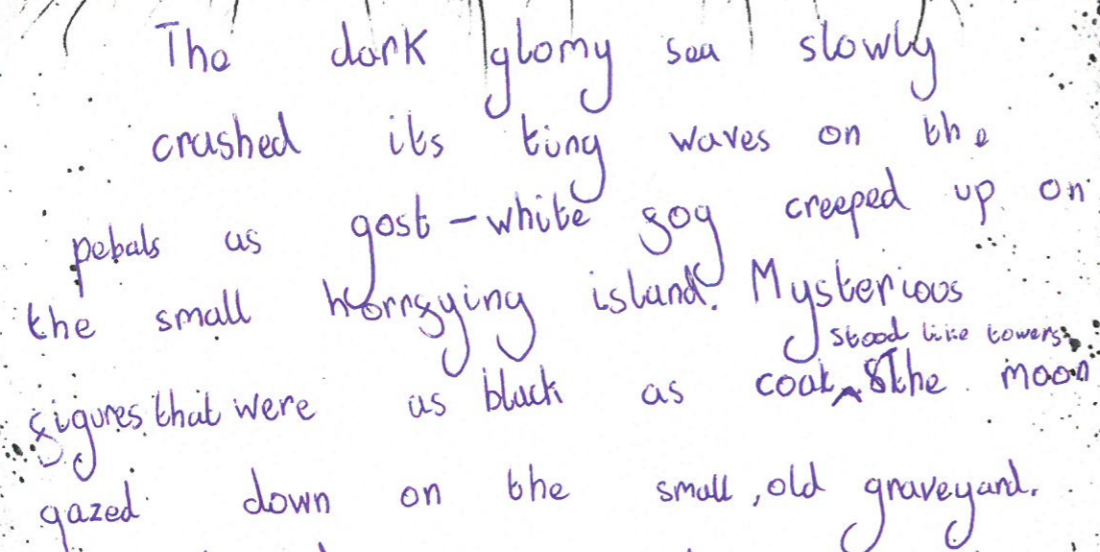 The dark glomy sea slowly
crashed its tiny waves on the
pebals as gost-white fog creeped up on
the small horrifying island. Mysterious
stood like towers
figures that were as black as coal ^ & the moon
gazed down on the small, old graveyard.